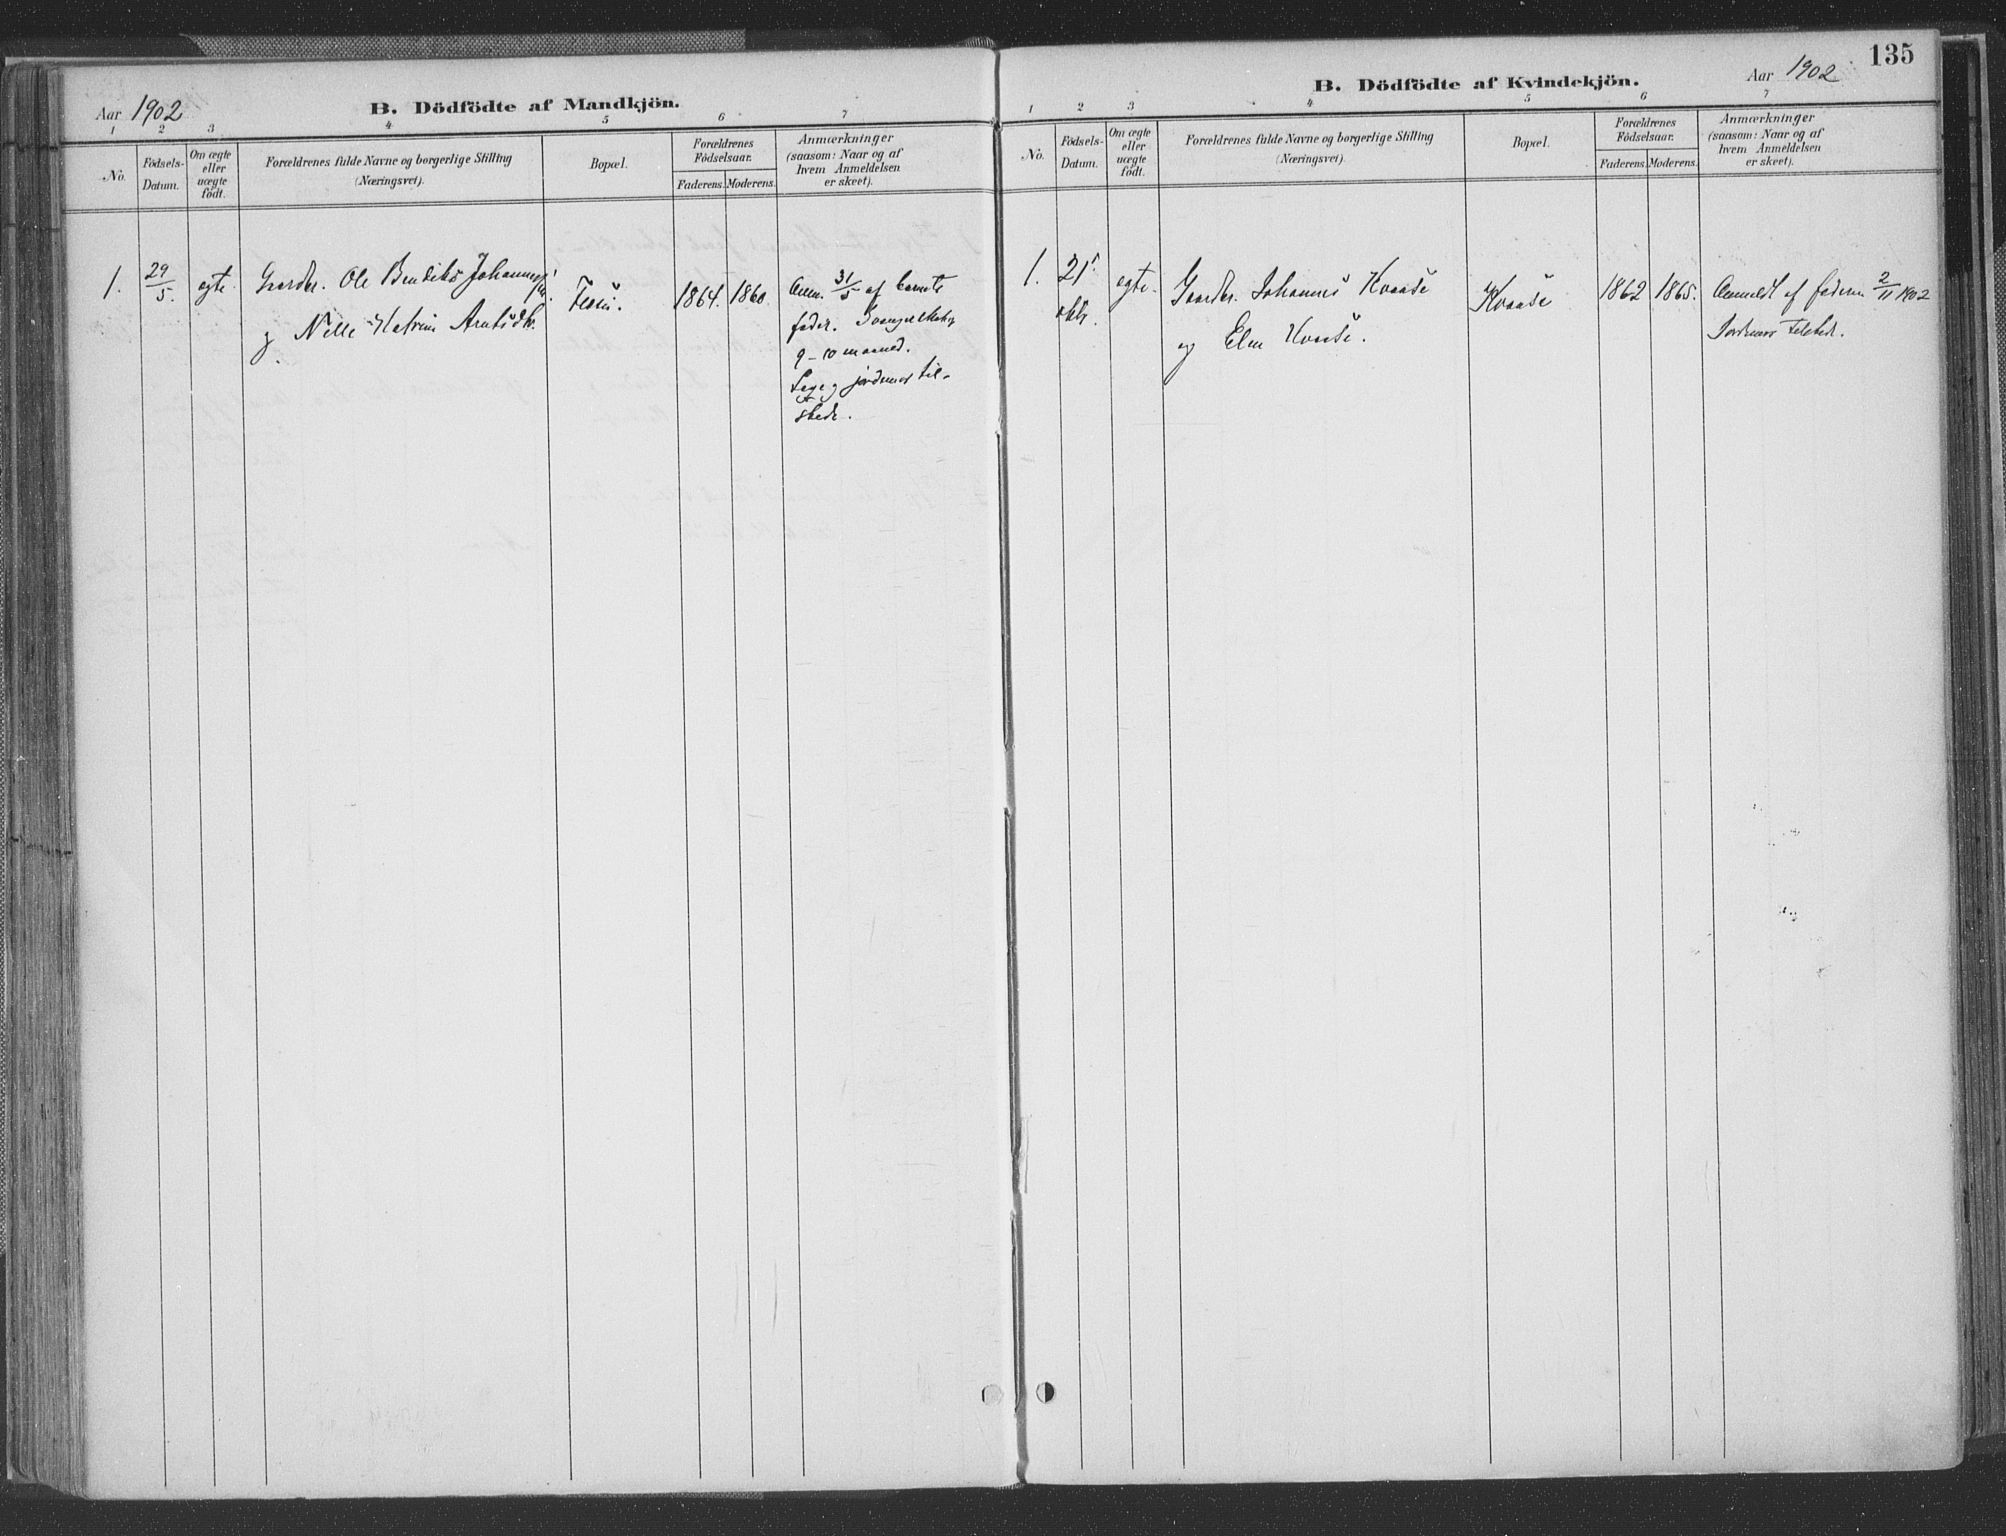 Aar 1902
B. Dödfödte af Mandkjön.
1 2 3 4 5 6 7
No.
Födsels-
Datum.
Om ægte
eller
uægte
födt.
Forældrenes fulde Navne og borgerlige Stilling
(Næringsvei).
Bopæl.
Forældrenes
Födselsaar.
Faderens. Moderens.
Anmærkninger
(saasom: Naar og af
hvem Anmeldelsen
er skeet).
1. 29/5. egte. Gaardbr. Ole Bendiks Johannes
og Nille Katrine
1864. 1860.
Anm. 31/5 af barnets
fader.
9-10 maaned.
Læge og jordmor til-
stede.
135
Aar 1902
B. Dödfödte af Kvindekjön.
1 2 3 4 5 6 7
No.
Födsels-
Datum.
Om ægte
eller
uægte
födt.
Forældrenes fulde Navne og borgerlige Stilling
(Næringsvei).
Bopæl.
Forældrenes
Födselsaar.
Faderens. Moderens.
Anmærkninger
(saasom: Naar og af
hvem Anmeldelsen
er skeet).
1. 21
oktb. egte. Gaardbr. Johannes Kvaase
og Elen Kvaase.
Kvaase 1862 1865.
Anmeldt af faderen 2/11 1902
Jordmor tilstede.